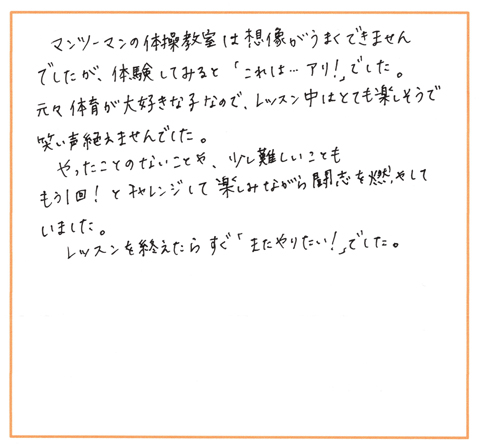 マンツーマンの体操教室は想像がうまくできません
でしたが、体験してみると「これは…アリ!」でした。
元々体育が大好きな子なので、レッスン中はとても楽しそうで
笑い声絶えませんでした。
やったことのないことや、少し難しいことも
もう1回!とチャレンジして楽しみながら闘志を燃やして
いました。
レッスンを終えたらすぐ「またやりたい!」でした。